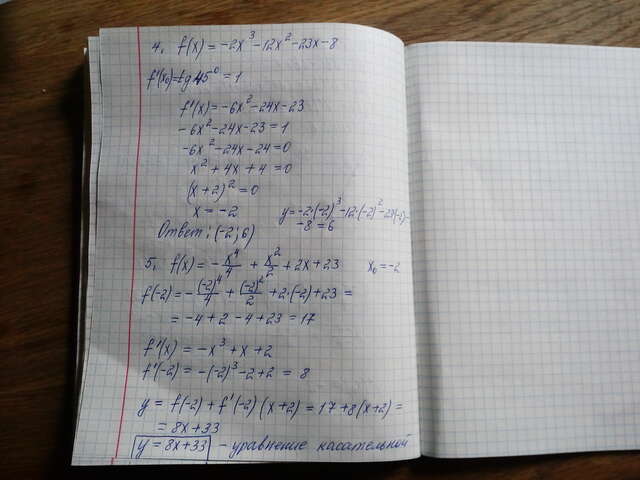 4. f(x) = -2x³-12x²-23x-8
f'(x₀)=tg 45° = 1
f'(x) = -6x²-24x-23
-6x²-24x-23 = 1
-6x²-24x-24=0
x² + 4x + 4 = 0
(x+2)² = 0
x = -2
y = -2·(-2)³-12·(-2)²-23(-2)-
-8 = 6
Ответ: (-2; 6)
5. f(x) = -x⁴/4 + x²/2 + 2x + 23 x₀ = -2
f(-2) = -(-2)⁴/4 + (-2)²/2 + 2·(-2) + 23 =
= -4 + 2 - 4 + 23 = 17
f'(x) = -x³ + x + 2
f'(-2) = -(-2)³ - 2 + 2 = 8
y = f(-2) + f'(-2) (x+2) = 17 + 8(x+2) =
= 8x + 33
y = 8x + 33 - уравнение касательной